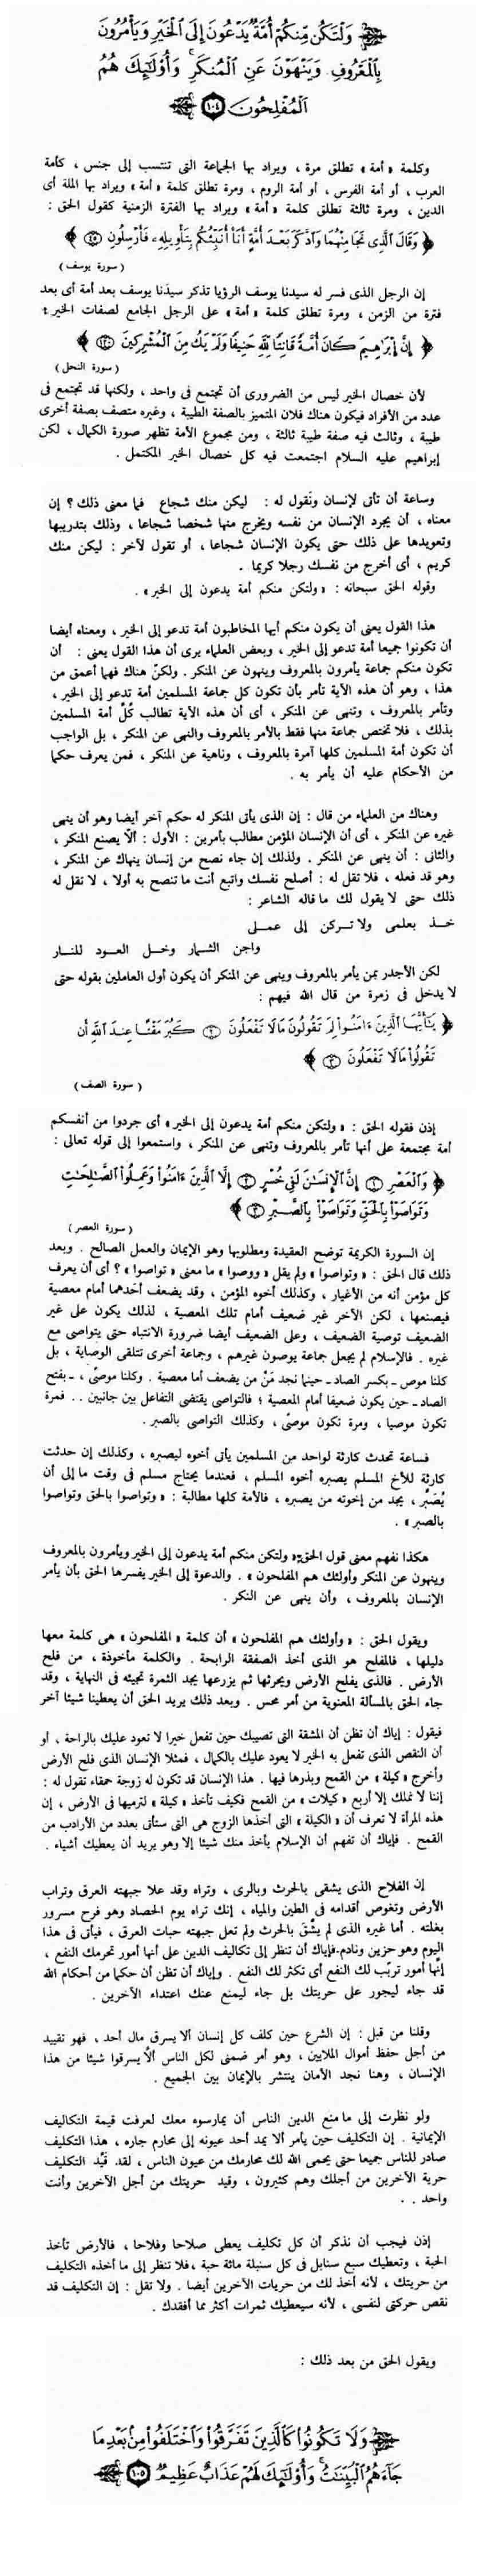 وَلْتَكُن مِّنكُمْ أُمَّةٌ يَدْعُونَ إِلَى الْخَيْرِ وَيَأْمُرُونَ
بِالْمَعْرُوفِ وَيَنْهَوْنَ عَنِ الْمُنكَرِ وَأُوْلَٰئِكَ هُمُ
الْمُفْلِحُونَ ١٠٤
وكلمة « أمة » تطلق مرة ، ويراد بها الجماعة التى تنتسب إلى جنس ، كأمة
العرب ، أو أمة الفرس ، أو أمة الروم ، ومرة تطلق كلمة « أمة » ويراد بها الملة أى
الدين ، ومرة ثالثة تطلق كلمة « أمة » ويراد بها الفترة الزمنية كقول الحق :
﴿ وَقَالَ الَّذِى نَجَا مِنْهُمَا وَادَّكَرَ بَعْدَ أُمَّةٍ أَنَا۠ أُنَبِّئُكُم بِتَأْوِيلِهِۦ فَأَرْسِلُونِ ٤٥ ﴾
( سورة يوسف )
إن الرجل الذى فسر له سيدنا يوسف الرؤيا تذكر سيدنا يوسف بعد أمة أى بعد
فترة من الزمن ، ومرة تطلق كلمة « أمة » على الرجل الجامع لصفات الخير :
﴿ إِنَّ إِبْرَٰهِيمَ كَانَ أُمَّةً قَانِتًا لِّلَّهِ حَنِيفًا وَلَمْ يَكُ مِنَ الْمُشْرِكِينَ ١٢٠ ﴾
( سورة النحل )
لأن خصال الخير ليس من الضرورى أن تجتمع فى واحد ، ولكنها قد تجتمع فى
عدد من الأفراد فيكون هناك فلان المتميز بالصفة الطيبة ، وغيره متصف بصفة أخرى
طيبة ، وثالث فيه صفة طيبة ثالثة ، ومن مجموع الأمة تظهر صورة الكمال ، لكن
إبراهيم عليه السلام اجتمعت فيه كل خصال الخير المكتمل .
وساعة أن تأتى لإنسان وتقول له : ليكن منك شجاع فما معنى ذلك ؟ إن
معناه ، أن يجرد الإنسان من نفسه ويخرج منها شخصا شجاعا ، وذلك بتدريبها
وتعويدها على ذلك حتى يكون الإنسان شجاعا ، أو تقول لآخر : ليكن منك
كريم ، أى أخرج من نفسك رجلا كريما .
وقوله الحق سبحانه : « ولتكن منكم أمة يدعون إلى الخير » .
هذا القول يعنى أن يكون منكم أيها المخاطبون أمة تدعو إلى الخير ، ومعناه أيضا
أن تكونوا جميعا أمة تدعو إلى الخير ، وبعض العلماء يرى أن هذا القول يعنى : أن
تكون منكم جماعة يأمرون بالمعروف وينهون عن المنكر . ولكنّ هناك فهما أعمق من
هذا ، وهو أن هذه الآية تأمر بأن تكون كل جماعة المسلمين أمة تدعو إلى الخير ،
وتأمر بالمعروف ، وتنهى عن المنكر ، أى أن هذه الآية تطالب كُلَّ أمة المسلمين
بذلك ، فلا تختص جماعة منها فقط بالأمر بالمعروف والنهى عن المنكر ، بل الواجب
أن تكون أمة المسلمين كلها آمرة بالمعروف ، وناهية عن المنكر ، فمن يعرف حكما
من الأحكام عليه أن يأمر به .
وهناك من العلماء من قال : إن الذى يأتى المنكر له حكم آخر أيضا وهو أن ينهى
غيره عن المنكر ، أى أن الإنسان المؤمن مطالب بأمرين : الأول : ألاّ يصنع المنكر ،
والثانى : أن ينهى عن المنكر . ولذلك إن جاء نصح من إنسان ينهاك عن المنكر ،
وهو قد فعله ، فلا تقل له : أصلح نفسك واتبع أنت ما تنصح به أولا ، لا تقل له
ذلك حتى لا يقول لك ما قاله الشاعر :
خـذ بعلمى ولا تـركن إلى عمـلى
واجن الثـمار وخـل العـود للنـار
لكن الأجدر بمن يأمر بالمعروف وينهى عن المنكر أن يكون أول العاملين بقوله حتى
لا يدخل فى زمرة من قال الله فيهم :
﴿ يَٰأَيُّهَا الَّذِينَ ءَامَنُوا۟ لِمَ تَقُولُونَ مَا لَا تَفْعَلُونَ ٢ كَبُرَ مَقْتًا عِندَ اللَّهِ أَن
تَقُولُوا۟ مَا لَا تَفْعَلُونَ ٣ ﴾
( سورة الصف )
إذن فقوله الحق : « ولتكن منكم أمة يدعون إلى الخير » أى جردوا من أنفسكم
أمة مجتمعة على أنها تأمر بالمعروف وتنهى عن المنكر ، واستمعوا إلى قوله تعالى :
﴿ وَالْعَصْرِ ١ إِنَّ الْإِنسَٰنَ لَفِى خُسْرٍ ٢ إِلَّا الَّذِينَ ءَامَنُوا۟ وَعَمِلُوا۟ الصَّٰلِحَٰتِ
وَتَوَاصَوْا۟ بِالْحَقِّ وَتَوَاصَوْا۟ بِالصَّبْرِ ٣ ﴾
( سورة العصر )
إن السورة الكريمة توضح العقيدة ومطلوبها وهو الإيمان والعمل الصالح . وبعد
ذلك قال الحق : « وتواصوا » ولم يقل « ووصوا » ما معنى « تواصوا » ؟ أى أن يعرف
كل مؤمن أنه من الأغيار ، وكذلك أخوه المؤمن ، وقد يضعف أحدهما أمام معصية
فيصنعها ، لكن الآخر غير ضعيف أمام تلك المعصية ، لذلك يكون على غير
الضعيف توصية الضعيف ، وعلى الضعيف أيضا ضرورة الانتباه حتى يتواصى مع
غيره . فالإسلام لم يجعل جماعة يوصون غيرهم ، وجماعة أخرى تتلقى الوصاية ، بل
كلنا موص - بكسر الصاد - حينما نجد مَنْ من يضعف أما معصية . وكلنا موصَّى ، - بفتح
الصاد - حين يكون ضعيفا أمام المعصية ؛ فالتواصى يقتضى التفاعل بين جانبين .. فمرة
تكون موصيا ، ومرة تكون موصًى ، وكذلك التواصى بالصبر .
فساعة تحدث كارثة لواحد من المسلمين يأتى أخوه ليصبره ، وكذلك إن حدثت
كارثة للأخ المسلم يصبره أخوه المسلم ، فعندما يحتاج مسلم فى وقت ما إلى أن
يُصَبَّر ، يجد من إخوته من يصبره ، فالأمة كلها مطالبة : « وتواصوا بالحق وتواصوا
بالصبر » .
هكذا نفهم معنى قول الحق : « ولتكن منكم أمة يدعون إلى الخير ويأمرون بالمعروف
وينهون عن المنكر وأولئك هم المفلحون » . والدعوة إلى الخير يفسرها الحق بأن يأمر
الإنسان بالمعروف ، وأن ينهى عن النكر .
ويقول الحق : « وأولئك هم المفلحون » أن كلمة « المفلحون » هى كلمة معها
دليلها ، فالمفلح هو الذى أخذ الصفقة الرابحة . والكلمة مأخوذة ، من فلح
الأرض . فالذى يفلح الأرض ويحرثها ثم يزرعها يجد الثمرة تجيئه فى النهاية ، وقد
جاء الحق بالمسألة المعنوية من أمر محس . وبعد ذلك يريد الحق أن يعطينا شيئا آخر
فيقول : إياك أن تظن أن المشقة التى تصيبك حين تفعل خيرا لا تعود عليك بالراحة ، أو
أن النقص الذى تفعل به الخير لا يعود عليك بالكمال ، فمثلا الإنسان الذى فلح الأرض
وأخرج « كيلة » من القمح وبذرها فيها . هذا الإنسان قد تكون له زوجة حمقاء تقول له :
إننا لا نملك إلا أربع « كيلات » من القمح فكيف تأخذ « كيلة » لترميها فى الأرض ، إن
هذه المرأة لا تعرف أن « الكيلة » التى أخذها الزوج هى التى ستأتى بعدد من الأرادب من
القمح . فإياك أن تفهم أن الإسلام يأخذ منك شيئا إلا وهو يريد أن يعطيك أشياء .
إن الفلاح الذى يشقى بالحرث وبالرى ، وتراه وقد علا جبهته العرق وتراب
الأرض وتغوص أقدامه فى الطين والمياه ، إنك تراه يوم الحصاد وهو فرح مسرور
بغلته . أما غيره الذى لم يشْقَ بالحرث ولم تعل جبهته حبات العرق ، فيأتى فى هذا
اليوم وهو حزين ونادم . فإياك أن تنظر إلى تكاليف الدين على أنها أمور تحرمك النفع ،
إنّها أمور تربّب لك النفع أى تكثر لك النفع . وإياك أن تظن أن حكما من أحكام الله
قد جاء ليجور على حريتك بل جاء ليمنع عنك اعتداء الآخرين .
وقلنا من قبل : إن الشرع حين كلف كل إنسان ألا يسرق مال أحد ، فهو تقييد
من أجل حفظ أموال الملايين ، وهو أمر ضمنى لكل الناس ألاّ يسرقوا شيئا من هذا
الإنسان ، وهنا نجد الأمان ينتشر بالإيمان بين الجميع .
ولو نظرت إلى ما منع الدين الناس أن يمارسوه معك لعرفت قيمة التكاليف
الإيمانية . إن التكليف حين يأمر ألا يمد أحد عيونه إلى محارم جاره ، هذا التكليف
صادر للناس جميعا حتى يحمى الله لك محارمك من عيون الناس ، لقد قَيَّد التكليف
حرية الآخرين من أجلك وهم كثيرون ، وقيد حريتك من أجل الآخرين وأنت
واحد . .
إذن فيجب أن نذكر أن كل تكليف يعطى صلاحا وفلاحا ، فالأرض تأخذ
الحبة ، وتعطيك سبع سنابل فى كل سنبلة مائة حبة ، فلا تنظر إلى ما أخذه التكليف
من حريتك ، لأنه أخذ لك من حريات الآخرين أيضا . ولا تقل : إن التكليف قد
نقص حركتى لنفسى ، لأنه سيعطيك ثمرات أكثر مما أفقدك .
ويقول الحق من بعد ذلك :
وَلَا تَكُونُوا۟ كَالَّذِينَ تَفَرَّقُوا۟ وَاخْتَلَفُوا۟ مِنۢ بَعْدِ مَا
جَآءَهُمُ الْبَيِّنَٰتُ وَأُوْلَٰئِكَ لَهُمْ عَذَابٌ عَظِيمٌ ١٠٥